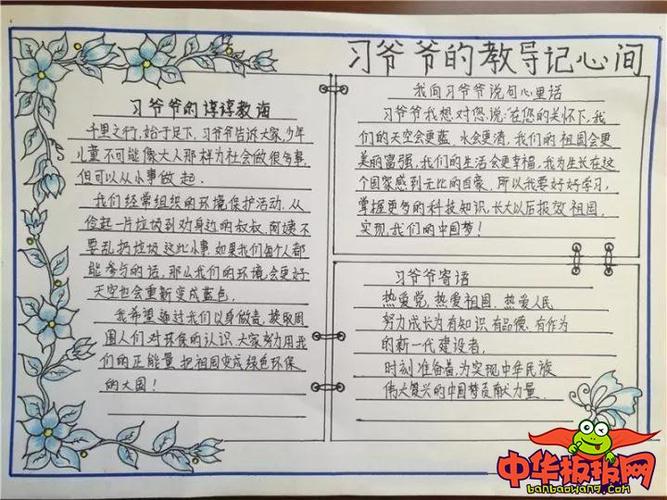 习爷爷的教导记心间
习爷爷的谆谆教诲
千里之行,始于足下,习爷爷告诉大家,少年
儿童不可能像大人那样为社会做很多事,
但可以从小事做起.
我们经常组织的环境保护活动.从
捡起一片垃圾到劝身边的叔叔,阿姨不
要乱扔垃圾这些小事,如果我们每个人都
能参与的话,那么我们的环境会更好
天空也会重新变成蓝色.
我希望通过我们以身做责,换取周
围人们对环保的认识.大家努力用我
们的正能量,把祖国变成绿色环保
的大国!
我向习爷爷说句心里话
习爷爷我想对您说:在您的关怀下,我
们的天空会更蓝.水会更清,我们的祖国会更
美丽富强,我们的生活会更幸福,我为生长在这
个国家感到无比的自豪.所以我要好好学习,
掌握更多的科技知识,长大以后报效祖国.
实现我们的中国梦!
习爷爷寄语
热爱党,热爱祖国.热爱人民
努力成长为有知识.有品德.有作为
的新一代建设者,
时刻准备着,为实现中华民族
伟大复兴的中国梦贡献力量.
中华板报网
banbaowang.com